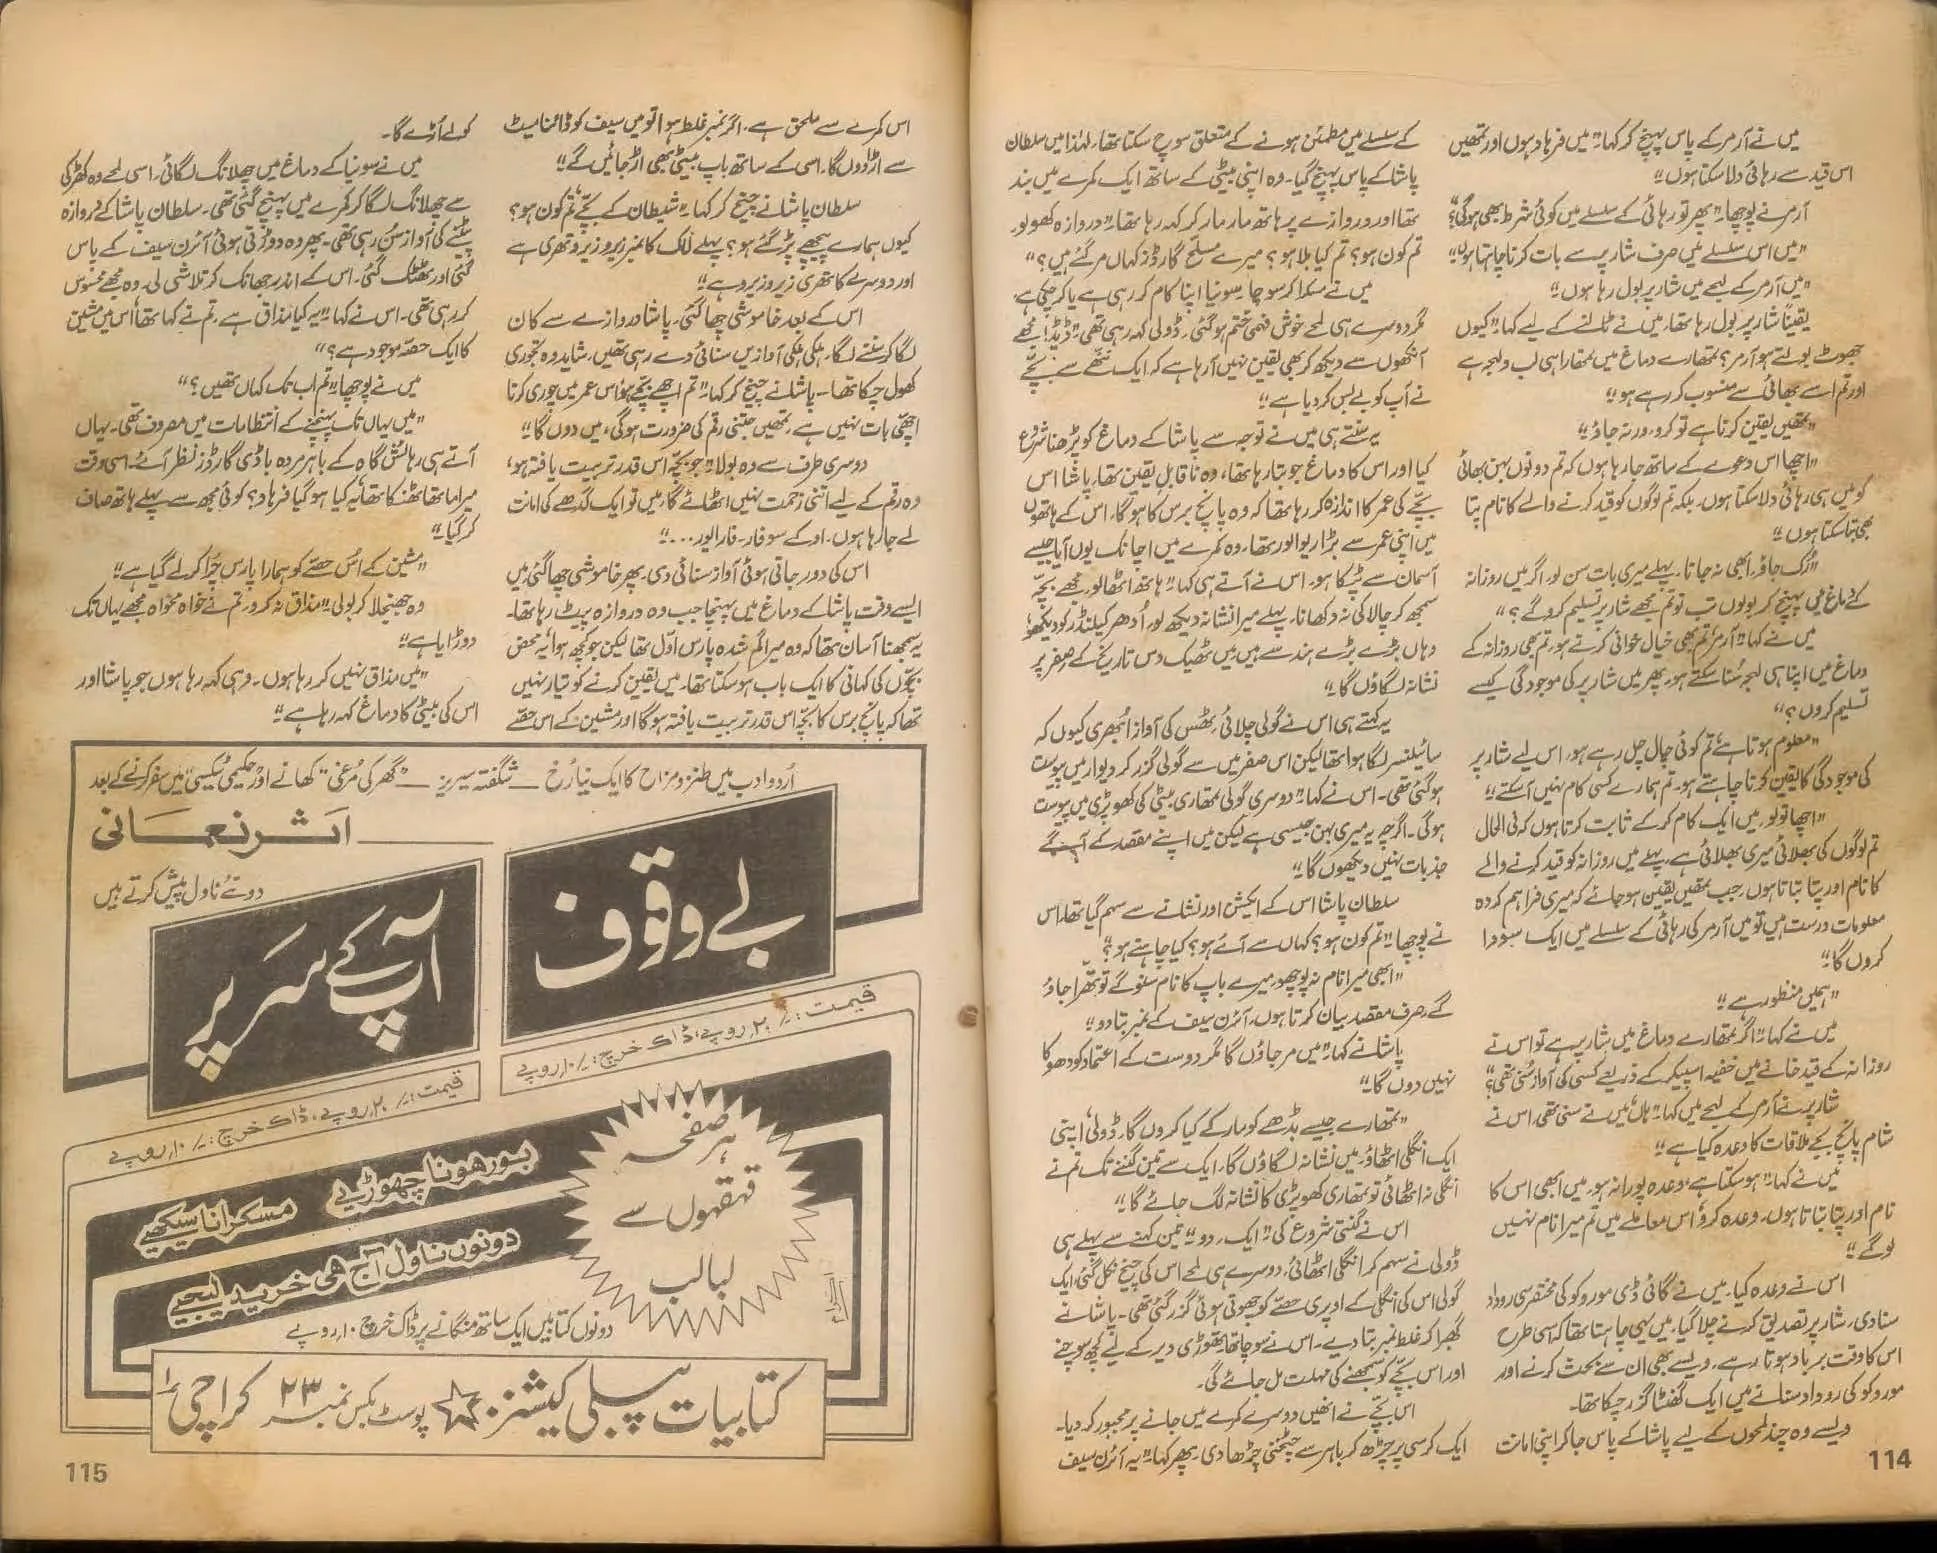 میں نے آرمر کے پاس پہنچ کر کہا "میں فرہاد ہوں اور تمہیں
اس قید سے رہائی دلا سکتا ہوں"
آرمر نے پوچھا "پھر تو رہائی کے سلسلے میں کوئی شرط بھی ہوگی؟"
"میں اس سلسلے میں صرف شارپر سے بات کرنا چاہتا ہوں"
"میں آرمر کے لہجے میں شارپر بول رہا ہوں"
یقیناً شارپر بول رہا تھا، میں نے ٹالنے کے لیے کہا "کیوں
جھوٹ بولتے ہو آرمر؟ تمھارے دماغ میں تمھارا ہی لب و لہجہ ہے
اور تم اسے بھائی سے منسوب کر رہے ہو"
"تمھیں یقین کرنا ہے تو کرو، ورنہ جاؤ"
"اچھا اس دعوے کے ساتھ جا رہا ہوں کہ تم دونوں بہن بھائی
کو میں ہی رہائی دلا سکتا ہوں۔ بلکہ تم لوگوں کو قید کرنے والے کا نام پتا
بھی بتا سکتا ہوں"
"رُک جاؤ، ابھی نہ جانا۔ پہلے میری بات سن لو، اگر میں روزانہ
کے دماغ میں پہنچ کر بولوں تب تو تم مجھے شارپر تسلیم کرو گے؟"
میں نے کہا "آرمر تم بھی خیال خوانی کرتے ہو، تم بھی روزانہ کے
دماغ میں اپنا ہی لہجہ سُنا سکتے ہو، پھر میں شارپر کی موجودگی کیسے
تسلیم کروں؟"
"معلوم ہوتا ہے، تم کوئی چال چل رہے ہو، اس لیے شارپر
کی موجودگی کا یقین کرنا چاہتے ہو۔ تم ہمارے کسی کام نہیں آ سکتے"
"اچھا تو لو، میں ایک کام کر کے ثابت کرتا ہوں کہ فی الحال
تم لوگوں کی بھلائی میری بھلائی ہے، پہلے میں روزانہ کو قید کرنے والے
کا نام اور پتا بتاتا ہوں۔ جب تمھیں یقین ہو جائے کہ میری فراہم کردہ
معلومات درست ہیں تو میں آرمر کی رہائی کے سلسلے میں ایک سودا
کروں گا"
"ہمیں منظور ہے"
میں نے کہا "اگر تمھارے دماغ میں شارپر ہے تو اس نے
روزانہ کے قید خانے میں خفیہ اسپیکر کے ذریعے کسی کی آواز سُنی تھی؟"
شارپر نے آرمر کے لہجے میں کہا "ہاں میں نے سنی تھی، اس نے
شام پانچ بجے ملاقات کا وعدہ کیا ہے"
میں نے کہا "ہو سکتا ہے، وعدہ پورا نہ ہو۔ میں ابھی اس کا
نام اور پتا بتاتا ہوں۔ وعدہ کرو، اس معاملے میں تم میرا نام نہیں
لو گے"
اس نے وعدہ کیا۔ میں نے گائی ڈی موروکو کی مختصر سی روداد
سنا دی۔ شارپر تصدیق کرنے چلا گیا۔ میں یہی چاہتا تھا کہ اسی طرح
اس کا وقت برباد ہوتا رہے۔ ویسے بھی ان سے بحث کرنے اور
موروکو کی روداد سنانے میں ایک گھنٹا گزر چکا تھا۔
ویسے وہ چند لمحوں کے لیے پاشا کے پاس جا کر اپنی امانت
114
کے سلسلے میں مطمئن ہونے کے متعلق سوچ سکتا تھا۔ لہٰذا میں سلطان
پاشا کے پاس پہنچ گیا۔ وہ اپنی بیٹی کے ساتھ ایک کمرے میں بند
تھا اور دروازے پر ہاتھ مار مار کر کہہ رہا تھا "دروازہ کھولو۔
تم کون ہو؟ تم کیا بلا ہو؟ میرے مسلح گارڈز کہاں مر گئے ہیں؟"
میں نے مسکرا کر سوچا۔ سونیا اپنا کام کر رہی ہے یا کر چکی ہے
مگر دوسرے ہی لمحے خوش فہمی ختم ہو گئی۔ ڈولی کہہ رہی تھی "ڈیڈ! مجھے
آنکھوں سے دیکھ کر بھی یقین نہیں آ رہا ہے کہ ایک ننھے سے بچے
نے آپ کو بے بس کر دیا ہے"
یہ سنتے ہی میں نے توجہ سے پاشا کے دماغ کو پڑھنا شروع
کیا اور اس کا دماغ جو بتا رہا تھا، وہ ناقابلِ یقین تھا۔ پاشا اس
بچے کی عمر کا اندازہ کر رہا تھا کہ وہ پانچ برس کا ہوگا۔ اس کے ہاتھوں
میں اپنی عمر سے بڑا ریوالور تھا۔ وہ کمرے میں اچانک یوں آیا جیسے
آسمان سے ٹپکا ہو۔ اس نے آتے ہی کہا "ہاتھ اٹھا لو، مجھے بچہ
سمجھ کر چالاکی نہ دکھانا۔ پہلے میرا نشانہ دیکھ لو۔ اُدھر کیلنڈر کو دیکھو
وہاں بڑے بڑے ہندسے ہیں۔ میں ٹھیک دس تاریخ کے صفر پر
نشانہ لگاؤں گا"
یہ کہتے ہی اس نے گولی چلائی۔ ٹھس کی آواز اُبھری کیوں کہ
سائیلنسر لگا ہوا تھا لیکن اس صفر میں سے گولی گزر کر دیوار میں پیوست
ہو گئی تھی۔ اس نے کہا "دوسری گولی تمھاری بیٹی کی کھوپڑی میں پیوست
ہوگی۔ اگرچہ یہ میری بہن جیسی ہے لیکن میں اپنے مقصد کے آگے
جذبات نہیں دیکھوں گا"
سلطان پاشا اس کے ایکشن اور نشانے سے سہم گیا تھا۔ اس
نے پوچھا "تم کون ہو؟ کہاں سے آئے ہو؟ کیا چاہتے ہو؟"
"ابھی میرا نام نہ پوچھو، میرے باپ کا نام سنو گے تو تھرا جاؤ
گے، صرف مقصد بیان کرتا ہوں، آئرن سیف کے نمبر بتا دو"
پاشا نے کہا "میں مر جاؤں گا مگر دوست کے اعتماد کو دھوکا
نہیں دوں گا"
"تمھارے جیسے بڈھے کو مار کے کیا کروں گا، ڈولی! اپنی
ایک انگلی اٹھاؤ۔ میں نشانہ لگاؤں گا، ایک سے تین گننے تک تم نے
انگلی نہ اٹھائی تو تمھاری کھوپڑی کا نشانہ لگ جائے گا"
اس نے گنتی شروع کی "ایک، دو" تین کہنے سے پہلے ہی
ڈولی نے سہم کر انگلی اٹھائی، دوسرے ہی لمحے اس کی چیخ نکل گئی، ایک
گولی اس کی انگلی کے اوپری حصے کو چھوتی ہوئی گزر گئی تھی۔ پاشا نے
گھبرا کر غلط نمبر بتا دیے۔ اس نے سوچا تھا، تھوڑی دیر کے لیے کچھ سوچنے
اور اس بچے کو سمجھنے کی مہلت مل جائے گی۔
اس بچے نے انھیں دوسرے کمرے میں جانے پر مجبور کر دیا۔
ایک کرسی پر چڑھ کر باہر سے چٹخنی چڑھا دی۔ پھر کہا "یہ آئرن سیف
اس کمرے سے ملحق ہے، اگر نمبر غلط ہوا تو میں سیف کو ڈائنامیٹ
سے اڑا دوں گا۔ اسی کے ساتھ باپ بیٹی بھی اڑ جائیں گے"
سلطان پاشا نے چیخ کر کہا "شیطان کے بچے، تم کون ہو؟
کیوں ہمارے پیچھے پڑ گئے ہو؟ پہلے لاک کا نمبر زیرو زیرو تھری ہے
اور دوسرے کا تھری زیرو زیرو ہے"
اس کے بعد خاموشی چھا گئی۔ پاشا دروازے سے کان
لگا کر سننے لگا، ہلکی ہلکی آوازیں سنائی دے رہی تھیں۔ شاید وہ تجوری
کھول چکا تھا۔ پاشا نے چیخ کر کہا "تم اچھے بچے ہو، اس عمر میں چوری کرنا
اچھی بات نہیں ہے، تمھیں جتنی رقم کی ضرورت ہوگی، میں دوں گا"
دوسری طرف سے وہ بولا "جو بچہ اس قدر تربیت یافتہ ہو،
وہ رقم کے لیے اتنی زحمت نہیں اٹھائے گا، میں تو ایک گدھے کی امانت
لے جا رہا ہوں۔ اوکے سو فار۔ فار ایور..."
اس کی دور جاتی ہوئی آواز سنائی دی۔ پھر خاموشی چھا گئی، میں
ایسے وقت پاشا کے دماغ میں پہنچا جب وہ دروازہ پیٹ رہا تھا۔
یہ سمجھنا آسان تھا کہ وہ میرا گم شدہ پارس اوّل تھا لیکن جو کچھ ہوا یہ محض
بچوں کی کہانی کا ایک باب ہو سکتا تھا۔ میں یقین کرنے کو تیار نہیں
تھا کہ پانچ برس کا بچہ اس قدر تربیت یافتہ ہوگا اور مشین کے اس حصے
کو لے اُڑے گا۔
میں نے سونیا کے دماغ میں چھلانگ لگائی۔ اسی لمحے وہ کھڑکی
سے چھلانگ لگا کر کمرے میں پہنچ گئی تھی۔ سلطان پاشا کے دروازہ
پیٹنے کی آواز سن رہی تھی۔ پھر وہ دوڑتی ہوئی آئرن سیف کے پاس
گئی اور ٹھٹک گئی۔ اس کے اندر جھانک کر تلاشی لی۔ وہ مجھے محسوس
کر رہی تھی۔ اس نے کہا "یہ کیا مذاق ہے، تم نے کہا تھا، اس میں مشین
کا ایک حصہ موجود ہے؟"
میں نے پوچھا "تم اب تک کہاں تھیں؟"
"میں یہاں تک پہنچنے کے انتظامات میں مصروف تھی۔ یہاں
آتے ہی رہائش گاہ کے باہر مردہ باڈی گارڈز نظر آئے۔ اسی وقت
میرا ماتھا ٹھنکا تھا، یہ کیا ہو گیا فرہاد؟ کوئی مجھ سے پہلے ہاتھ صاف
کر گیا"
"مشین کے اُس حصے کو ہمارا پارس چُرا کر لے گیا ہے"
وہ جھنجلا کر بولی "مذاق نہ کرو، تم نے خواہ مخواہ مجھے یہاں تک
دوڑایا ہے"
"میں مذاق نہیں کر رہا ہوں۔ وہی کہہ رہا ہوں جو پاشا اور
اس کی بیٹی کا دماغ کہہ رہا ہے"
اُردو ادب میں طنز و مزاح کا ایک نیا رُخ — شگفتہ سیریز — "گھر کی مرغی" کھانے اور "حکیمی ٹیکسی" میں سفر کرنے کے بعد
اثر نعمانی
دو نئے ناول پیش کرتے ہیں
بے وقوف
قیمت: ۲۰/- روپے، ڈاک خرچ: ۱۰/- روپے
آپ کے سر پر
قیمت: ۲۰/- روپے، ڈاک خرچ: ۱۰/- روپے
ہر صفحہ
قہقہوں سے
لبالب
بور ہونا چھوڑیے مسکرانا سیکھیے
دونوں ناول آج ہی خرید لیجیے
دونوں کتابیں ایک ساتھ منگانے پر ڈاک خرچ ۱۰ روپے
کتابیات پبلی کیشنز ☆ پوسٹ بکس نمبر ۲۳ کراچی ۱
115